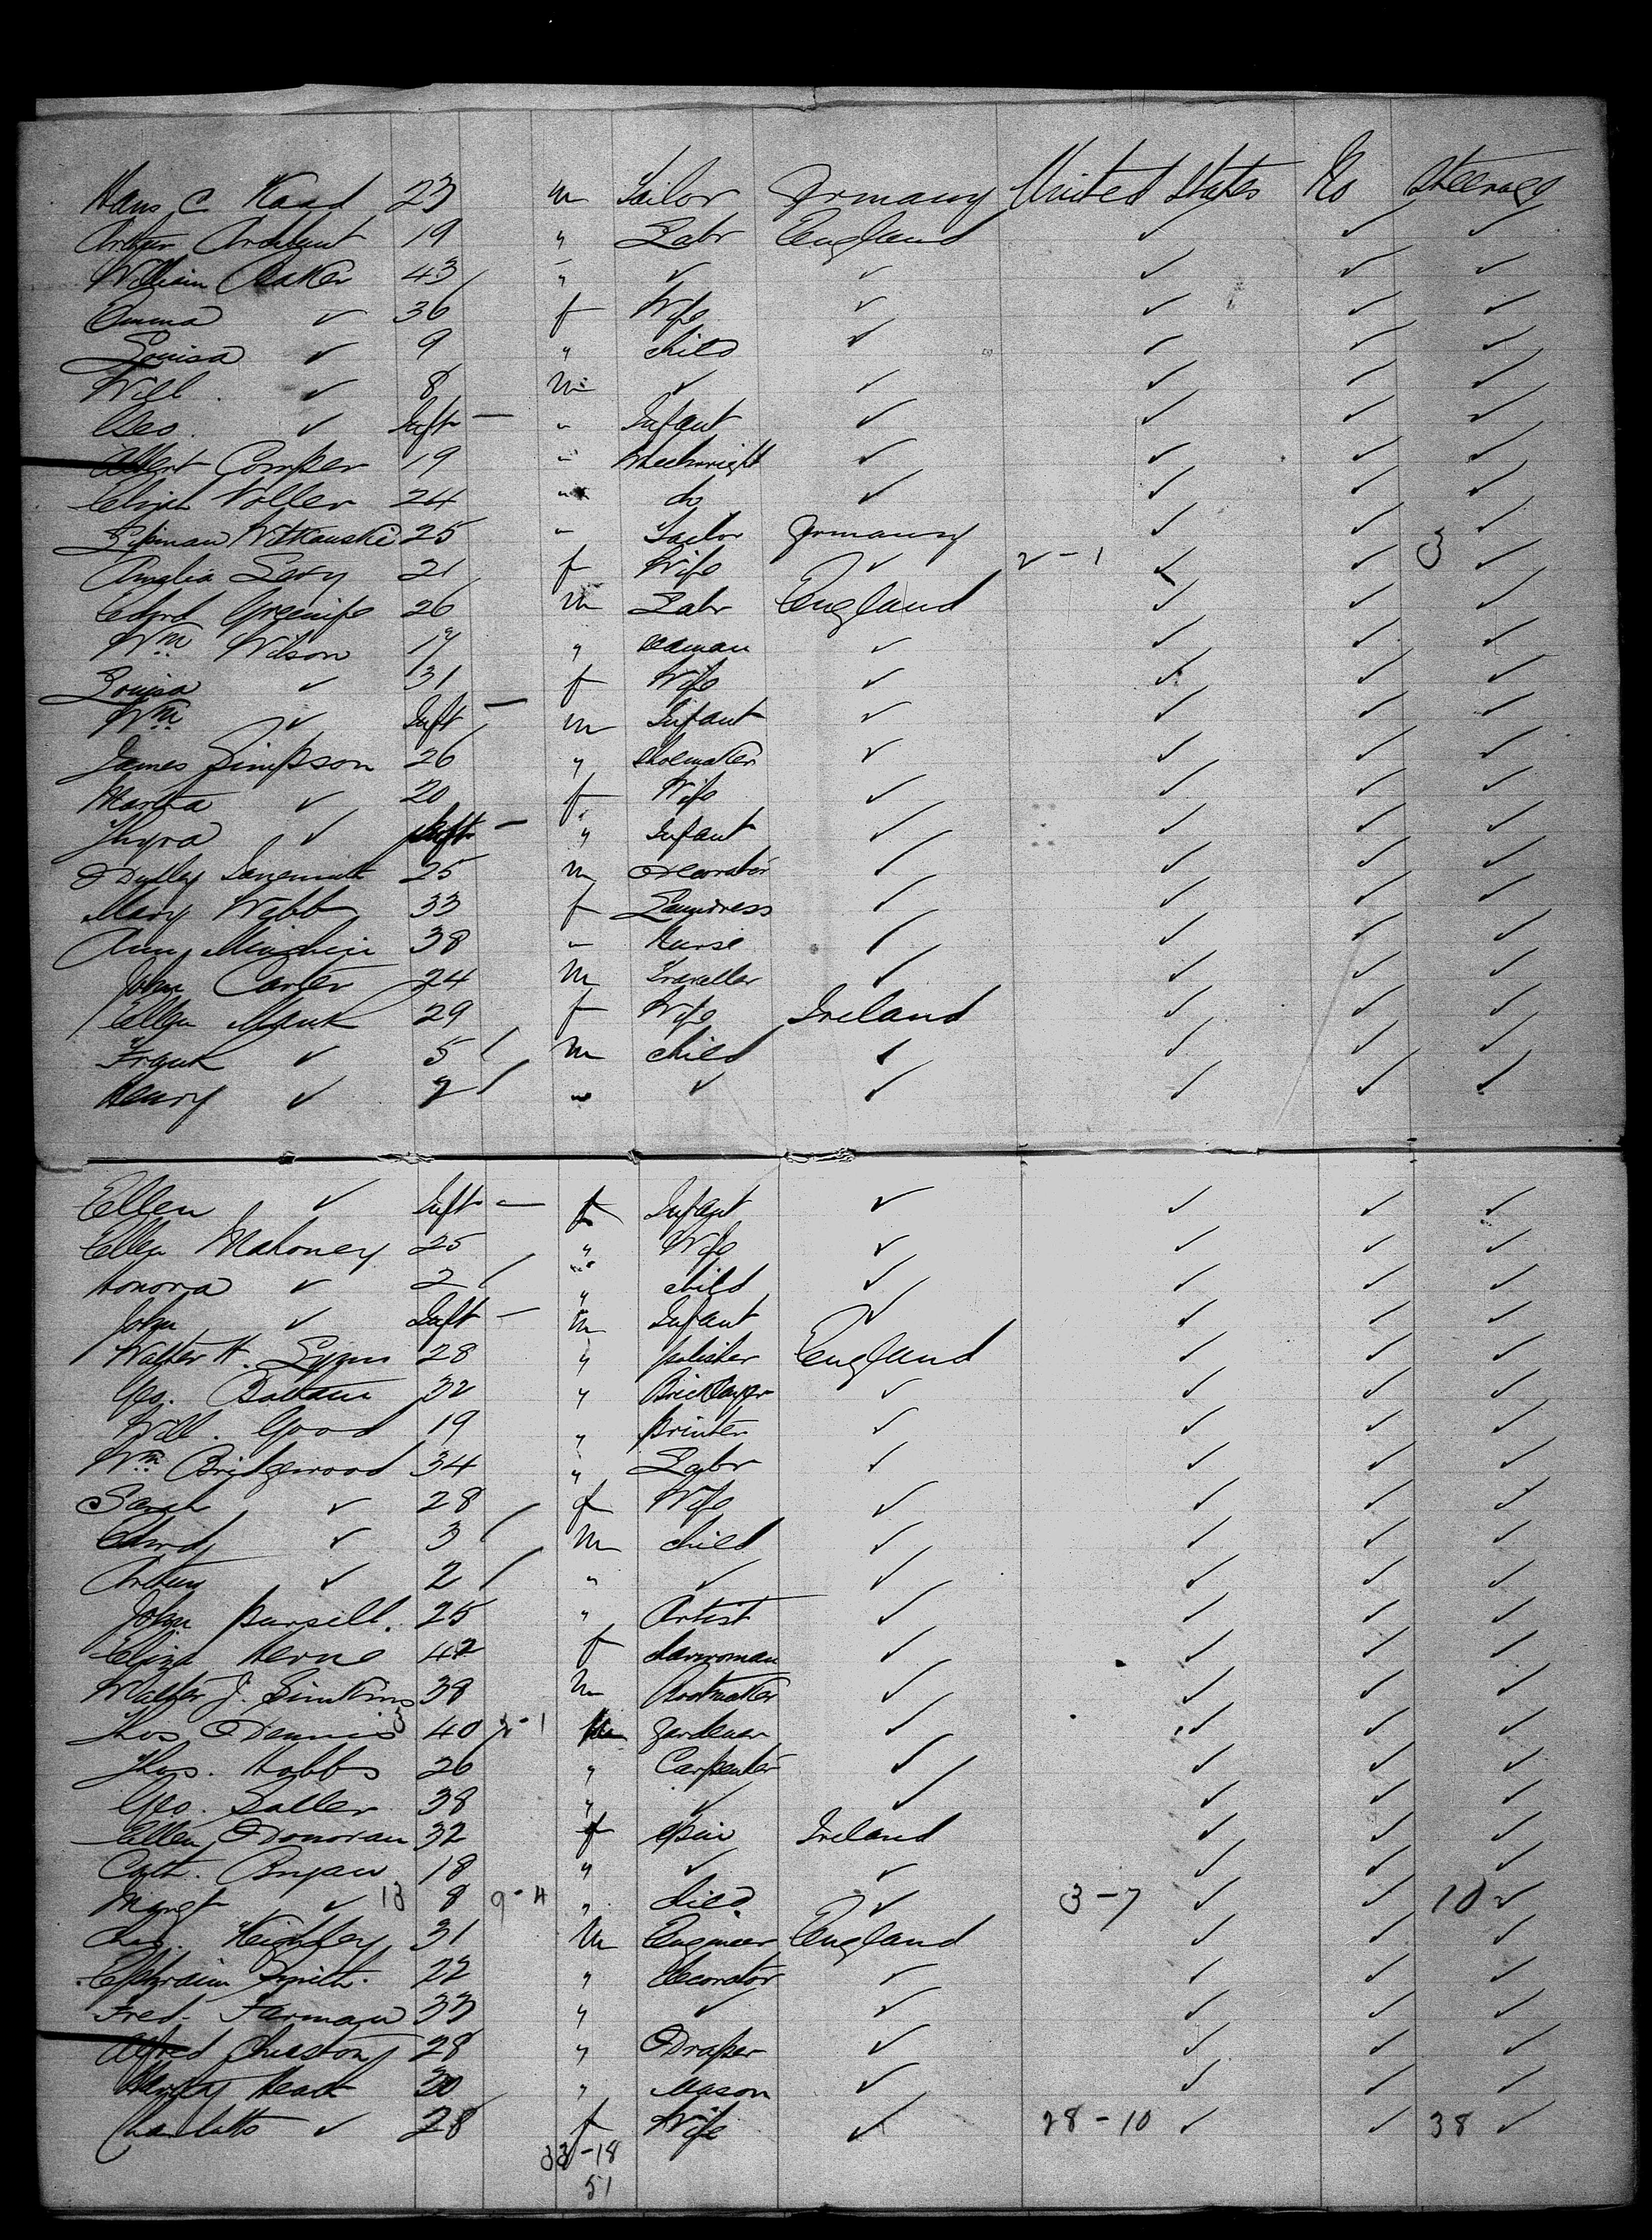 Hans C. Kaad 23 m Tailor Germany United States No Steerage
Arthur 19 " Labr England ✓ ✓ ✓
William Baker 43 " ✓ ✓ ✓ ✓ ✓
Emma ✓ 36 f Wife ✓ ✓ ✓ ✓
Louisa ✓ 9 " child ✓ ✓ ✓ ✓
Will. ✓ 8 m ✓ ✓ ✓ ✓ ✓
Geo. ✓ Inft — " Infant ✓ ✓ ✓ ✓
Albert Comper 19 " Wheelwright ✓ ✓ ✓ ✓
Elijah Voller 24 " do ✓ ✓ ✓ ✓
Lipman Witkauski 25 " Tailor Germany ✓ ✓ ✓
Amelia Levy 21 f Wife ✓ 2-1 ✓ ✓ 3 ✓
26 m Labr England ✓ ✓ ✓
Wm Wilson " seaman ✓ ✓ ✓ ✓
Louisa ✓ 31 f Wife ✓ ✓ ✓ ✓
Wm ✓ Inft — m Infant ✓ ✓ ✓ ✓
James Simpson 26 " shoemaker ✓ ✓ ✓ ✓
Martha ✓ 20 f Wife ✓ ✓ ✓ ✓
Thyra ✓ Inft — " Infant ✓ ✓ ✓ ✓
Dudley 25 m Decorator ✓ ✓ ✓ ✓
Mary Webb 33 f Laundress ✓ ✓ ✓ ✓
Amy Minchin 38 " Nurse ✓ ✓ ✓ ✓
John Carter 24 m Traveller ✓ ✓ ✓ ✓
Ellen Monk 29 f Wife Ireland ✓ ✓ ✓
Frank ✓ 5 m child ✓ ✓ ✓ ✓
Henry ✓ " ✓ ✓ ✓ ✓ ✓
Ellen ✓ Inft — f Infant ✓ ✓ ✓ ✓
Ellen Mahoney 25 " Wife ✓ ✓ ✓ ✓
Honora ✓ 2 " child ✓ ✓ ✓ ✓
John ✓ Inft — m Infant ✓ ✓ ✓ ✓
Walter H. Lyons 28 " polisher England ✓ ✓ ✓
Geo. 32 " Bricklayer ✓ ✓ ✓ ✓
Will. Good 19 " printer ✓ ✓ ✓ ✓
Wm Bridgewood 34 " Labr ✓ ✓ ✓ ✓
Sarah ✓ 28 f Wife ✓ ✓ ✓ ✓
Edwd ✓ 3 m child ✓ ✓ ✓ ✓
Arthur ✓ 2 " ✓ ✓ ✓ ✓ ✓
John Pursell. 25 " Artist ✓ ✓ ✓ ✓
Eliza Herne 42 f charwoman ✓ ✓ ✓ ✓
Walter J. Simkins 38 m Bootmaker ✓ ✓ ✓ ✓
Thos Dennis 40 m gardener ✓ ✓ ✓ ✓
Thos. Hobbs 26 " Carpenter ✓ ✓ ✓ ✓
Geo. Salter 38 " ✓ ✓ ✓ ✓ ✓
Ellen Donovan 32 f spin Ireland ✓ ✓ ✓
Cath. Bryan 18 " ✓ ✓ ✓ ✓ ✓
Margt ✓ 13 8 9-4 " child ✓ 3-7 ✓ ✓ 10 ✓
Chs. Keighley 31 m Engineer England ✓ ✓ ✓
Ephraim Smith. 22 " decorator ✓ ✓ ✓ ✓
Fred. Farman 33 " ✓ ✓ ✓ ✓ ✓
Alfred 28 " Draper ✓ ✓ ✓ ✓
Henry 30 " Mason ✓ ✓ ✓ ✓
Charlotte ✓ 28 f Wife ✓ 28-10 ✓ ✓ 38 ✓
33-18
51